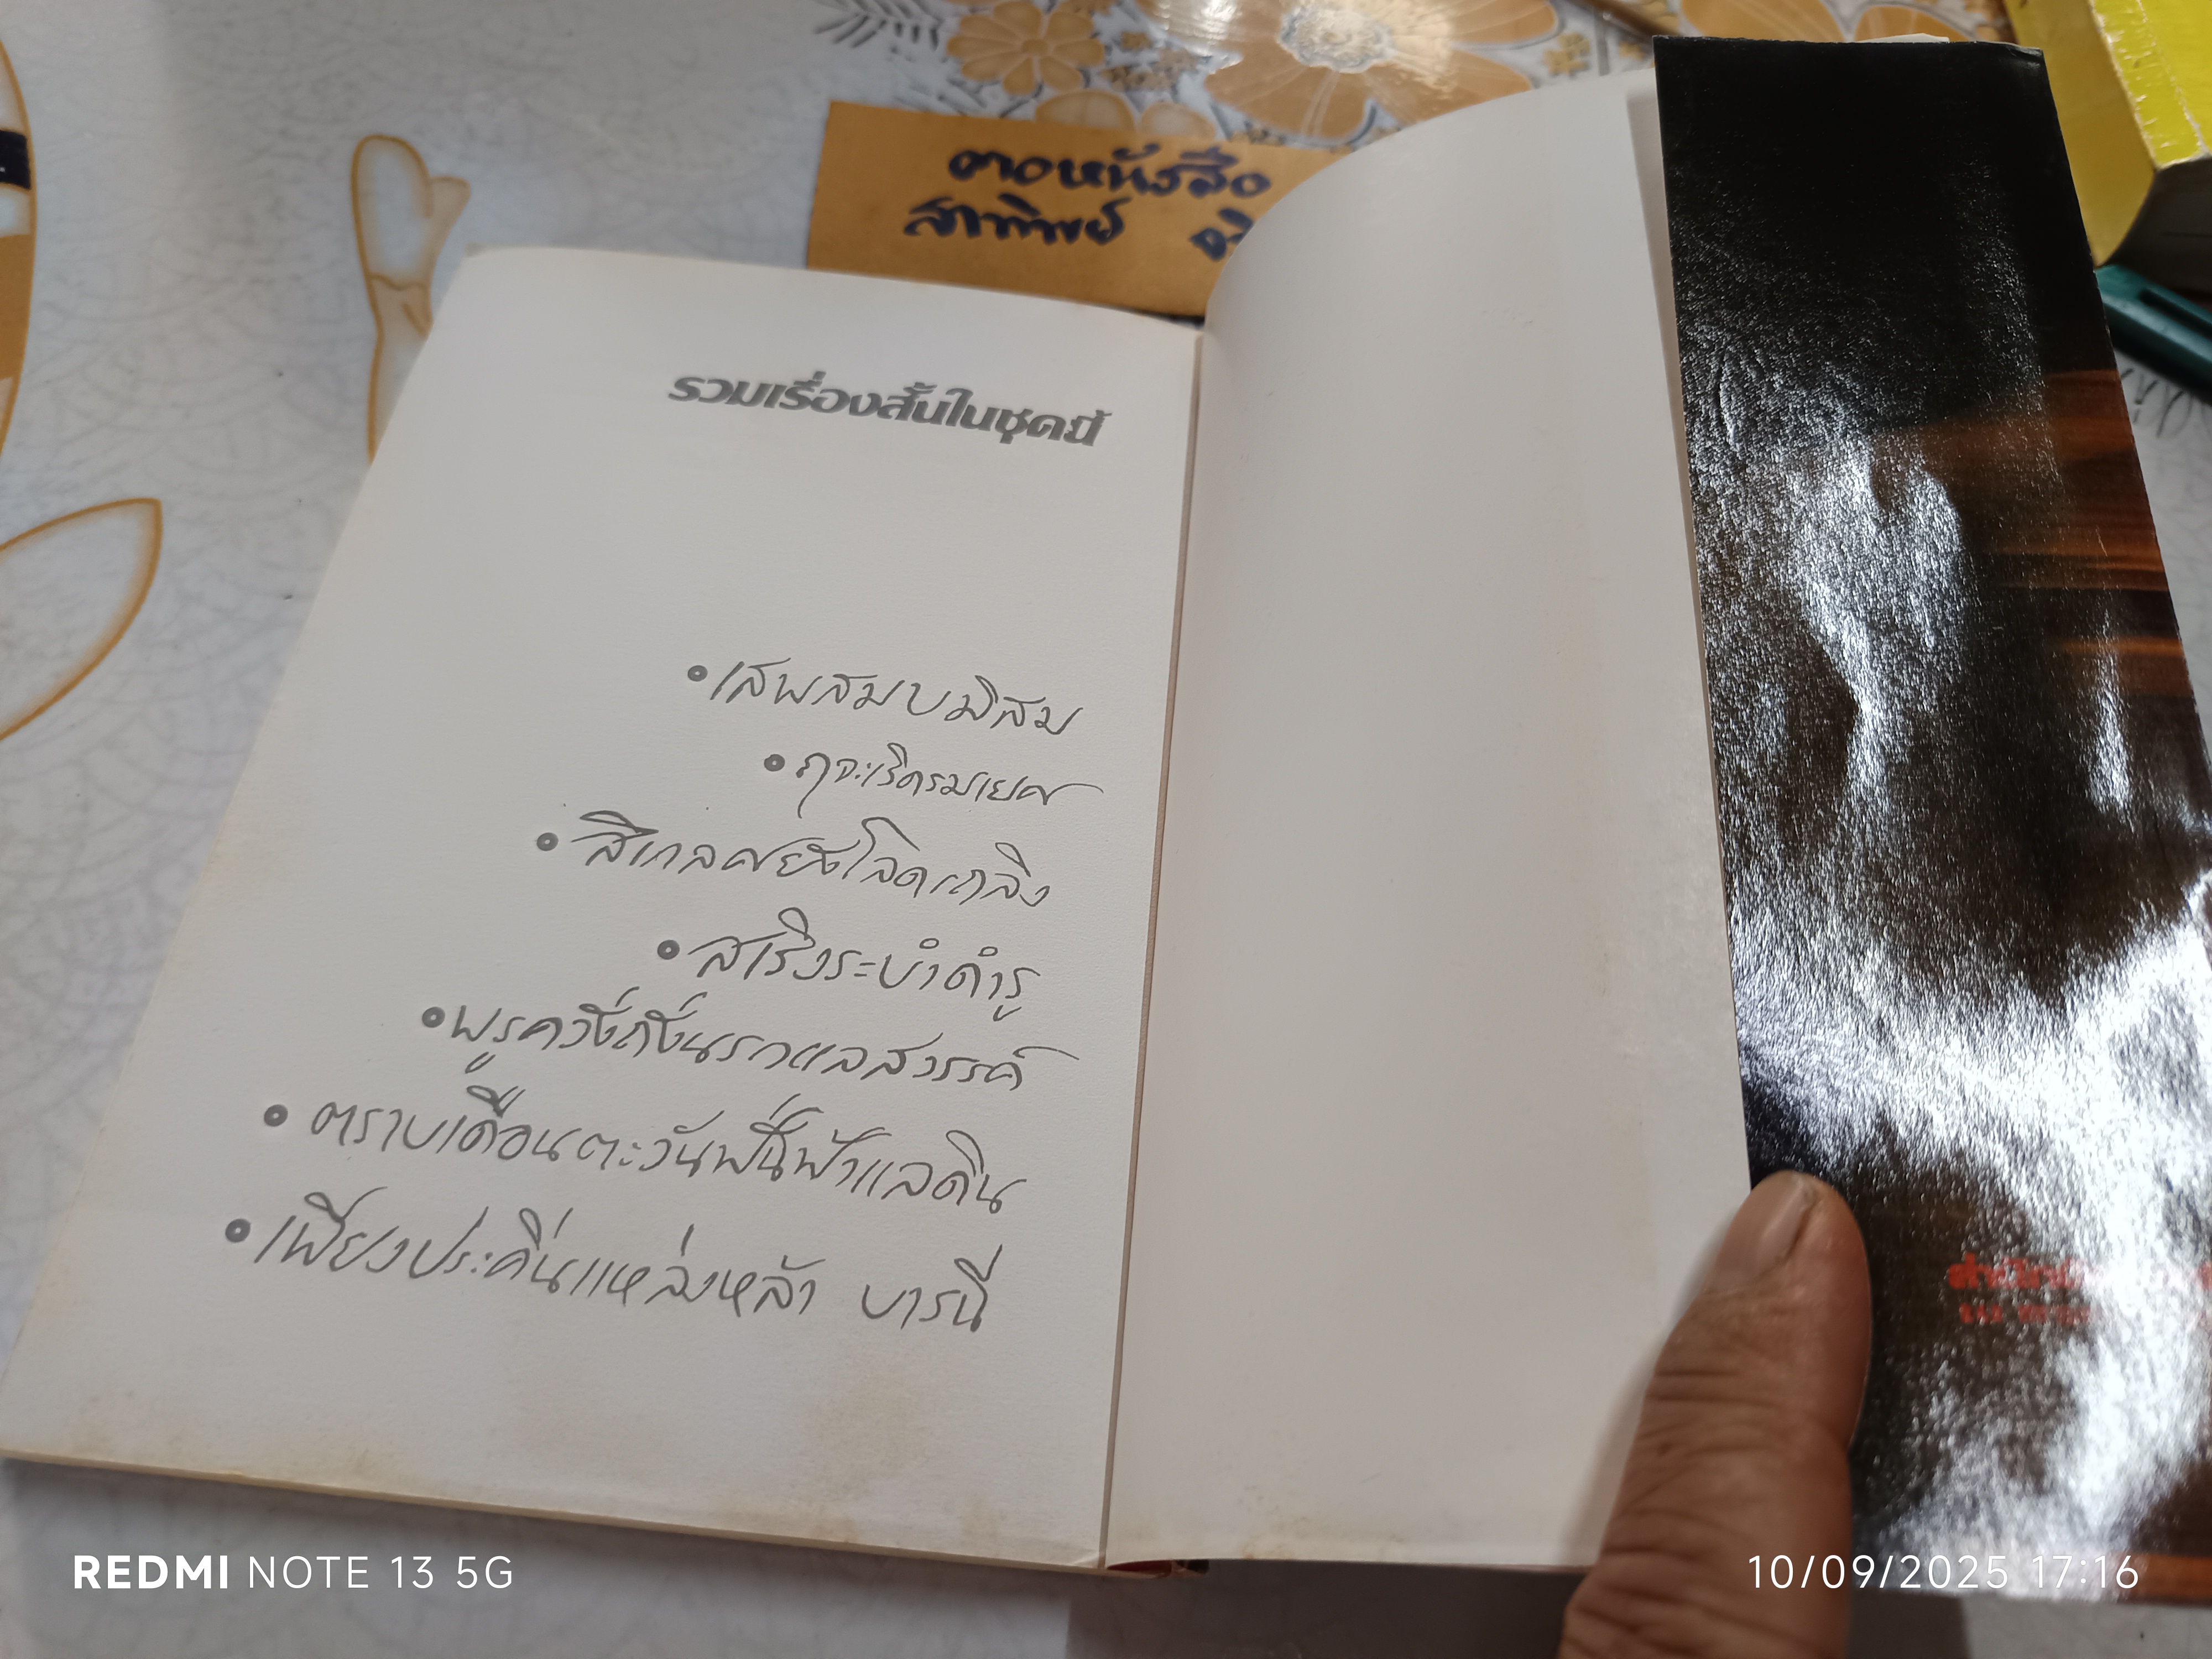 ตอหนังสือ
สาทิพย์
รวมเรื่องสั้นในชุดนี้
เสพสมบ่มิสม
ฤจะเริดรมเยศ
สิเกลศยังโลดเถลิง
สเริงระบำดำรู
พรูควั่งถั่งนรกแลสวรรค์
ตราบเดือนตะวันฟั่นฟ้าแลดิน
เพียงประคิ่นแหล่งหล้า บารนี
REDMI NOTE 13 5G
10/09/2025 17:16